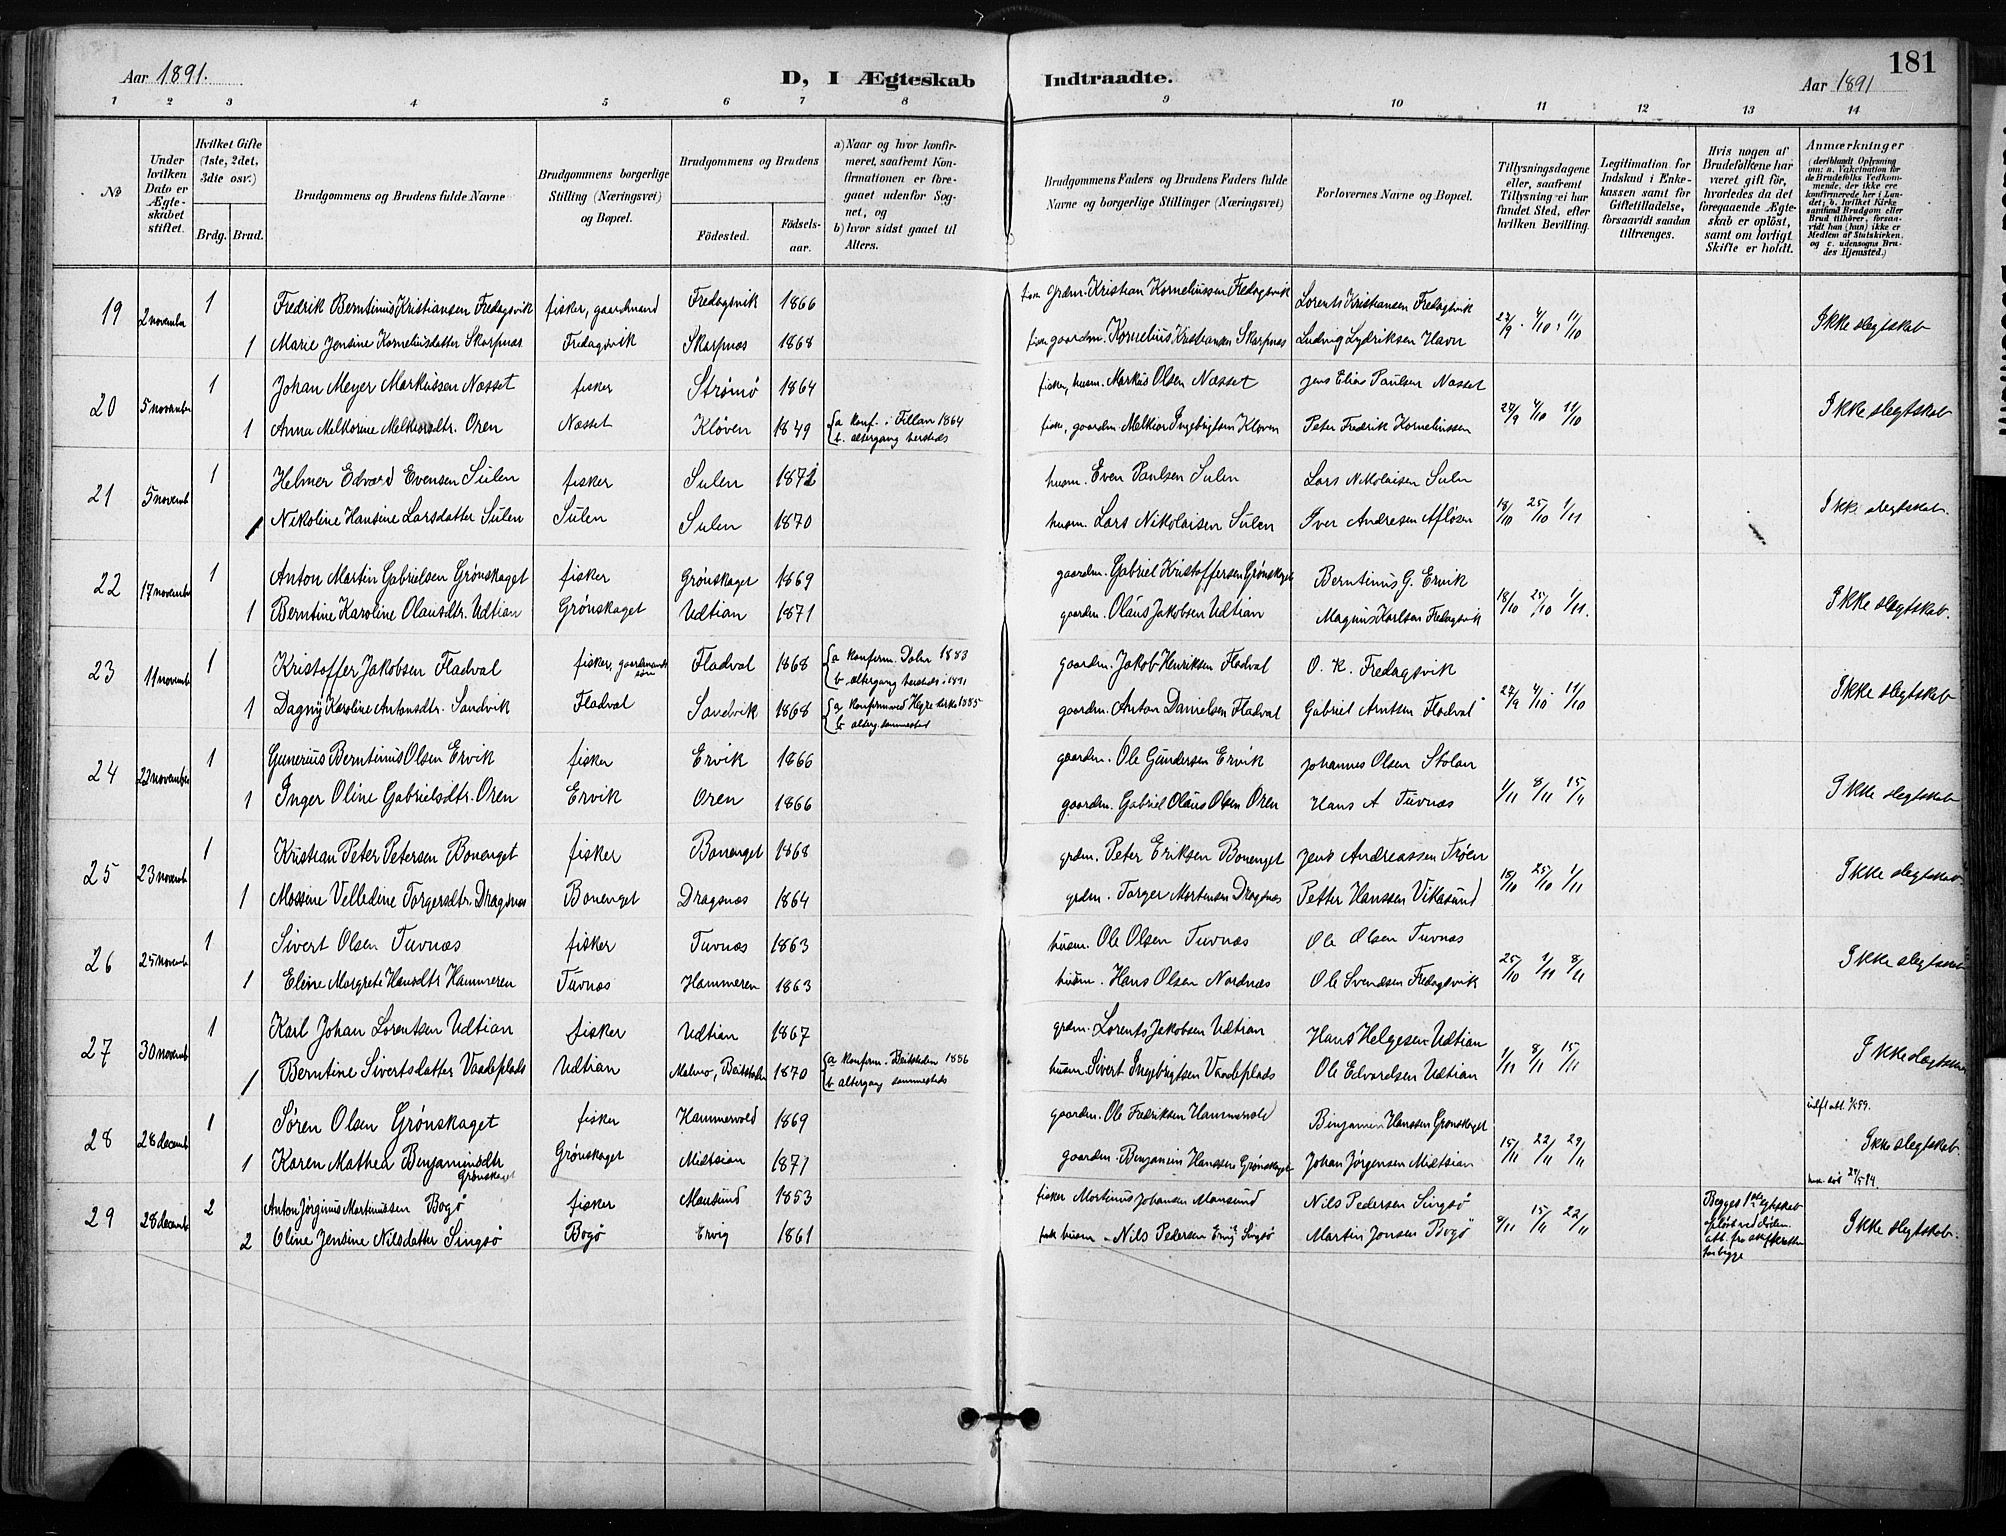 181
Aar 1891.
D, I Ægteskab Indtraadte.
Aar 1891
1 2 3 4 5 6 7 8 9 10 11 12 13 14
No
Under hvilken Dato er Ægteskabet stiftet.
Hvilket Gifte (1ste, 2det, 3die osv.)
Brdg. Brud.
Brudgommens og Brudens fulde Navne
Brudgommens borgerlige Stilling (Næringsvei) og Bopæl.
Brudgommens og Brudens
Fødested. Fødselsaar.
a) Naar og hvor konfirmeret, saafremt Konfirmationen er foregaaet udenfor Sognet, og
b) hvor sidst gaaet til Alters.
Brudgommens Faders og Brudens Faders fulde Navne og borgerlige Stillinger (Næringsvei)
Forlovernes Navne og Bopæl.
Tillysningsdagene eller, saafremt Tillysning ei har fundet Sted, efter hvilken Bevilling.
Legitimation for Indskud i Enkekassen samt for Giftetilladelse, forsaavidt saadan tiltrænges.
Hvis nogen af Brudefolkene har været gift før, hvorledes da det foregaaende Ægteskab er opløst, samt om lovligt Skifte er holdt.
Anmærkninger
(deriblandt Oplysning om: a. Vakcination for de Brudefolks Vedkommende, der ikke ere konfirmerede her i Landet; b. hvilket Kirkesamfund Brudgom eller Brud tilhører, forsaavidt han (hun) ikke er Medlem af Statskirken, og c. udensogns Brudes Hjemsted.)
19 2 november 1 Fredrik Berntinus Kristiansen Fredagsvik fisker, gaardmand Fredagsvik 1866 Grdm. Kristian Korneliussen Fredagsvik Lorents Kristiansen Fredagsvik 27/9 · 4/10 · 11/10 Ikke slegtskab
1 Marie Jensine Korneliusdatter Skarpnæs Fredagsvik Skarpnæs 1868 gaardm. Kornelius Kristiansen Skarpnæs Ludvig Lydriksen Havn
20 5 november 1 Johan Meyer Markussen Næsset fisker Strømø 1864 fisker, husm. Markus Olsen Næsset Jens Elias Paulsen Næsset 27/9 4/10 11/10 Ikke slegtskab
1 Anna Melkorine Melkiordtr. Oren Næsset Kløven 1849 a konf. i Fillan 1864 b. altergang hersteds fisk, gaardm Melkior Ingebrigtsen Kløven Peter Fredrik Korneliussen
21 5 novemb 1 Helmer Edvard Evensen Sulen fisker Sulen 1872 husm. Even Paulsen Sulen Lars Nikolaisen Sulen 18/10 25/10 1/11 Ikke slegtskab.
1 Nikoline Hansine Larsdatter Sulen Sulen Sulen 1870 husm. Lars Nikolaisen Sulen Iver Andresen Afløsen
22 17 november 1 Anton Martin Gabrielsen Grønskaget fisker Grønskaget 1869 gaardm. Gabriel Kristoffersen Grønskaget Berntinus G. Ervik 18/10 25/10 1/11. Ikke slegtskab.
1 Berntine Karoline Olausdtr. Udtian Grønskaget Udtian 1871 gaardm. Olaus Jakobsen Udtian Magnus Karlsen Fredagsvik
23 11 novemb 1 Kristoffer Jakobsen Fladval fisker, gaardmands søn Fladval 1868 a konfirm. Dolm 1883 b altergang hersteds 1891 gaardm. Jakob Henriksen Fladval O. K. Fredagsvik 27/9 4/10 · 11/10 Ikke slegtskab
1 Dagny Karoline Antonsdtr. Sandvik Fladval Sandvik 1868 a konfirm ved Hegre kirke 1885 b alterg. sammested gaardm. Anton Danielsen Fladval Gabriel Arntsen Fladval
24 22 november 1 Gunerius Berntinus Olsen Ervik fisker Ervik 1866 gaardm. Ole Gundersen Ervik Johannes Olsen Stolan 1/11 8/11 15/11 Ikke slegtskab
1 Inger Oline Gabrielsdtr. Oren Ervik Oren 1866 gaardm. Gabriel Olaus Olsen Oren Hans A Tuvnæs
25 23 novemb 1 Kristian Peter Petersen Bonenget fisker Bonenget 1868 grdm. Peter Eriksen Bonenget Jens Andreassen Trøen 18/10 25/10 1/11 Ikke slegtskab.
1 Massine Velledine Torgersdtr. Dragsnæs Bonenget Dragsnæs 1864 grdm. Torger Mortensen Dragsnæs Petter Hanssen Vikasund
26 25 novemb 1 Sivert Olsen Tuvnæs fisker Tuvnæs 1863 husm. Ole Olsen Tuvnæs Ole Olsen Tuvnæs 25/10 1/11 8/11 Ikke slegtskab
1 Eline Margrete Hansdtr Hammeren Tuvnæs Hammeren 1863 husm. Hans Olsen Nordnæs Ole Svendsen Fredagsvik
27 30 novemb 1 Karl Johan Lorentsen Udtian fisker Udtian 1867 grdm. Lorents Jakobsen Udtian Hans Helgesen Udtian 1/11 8/11 15/11 Ikke slegtskab
1 Berntine Sivertsdatter Vaadeplads Udtian Malmo, Beitstaden 1870 a konfirm. Beitstaden 1886 b altergang sammesteds husm. Sivert Ingebrigtsen Vaadeplads Ole Edvardsen Udtian
28 28 decemb 1 Søren Olsen Grønskaget fisker Hammervold 1869 gaardm. Ole Fredriksen Hammervold Benjamin Hanssen Grønskaget 15/11 22/11 29/11 Ikke slegtskab.
1 Karen Mathea Benjaminsdtr Grønskaget Grønskaget Midtsian 1871 gaardm. Benjamin Hanssen Grønskaget Johan Jørgensen Midtsian
29 28 decemb 2 Anton Jørginus Martinussen Bogø fisker Mausund 1853 fisker Martinus Johansen Mausund Nils Pedersen Singsø 8/11 15/11 22/11 Begges 1ste egtskab opløst ved døden. att. fra skifteretten for begge Ikke slegtskab.
2 Oline Jensine Nilsdatter Singsø Bogø Ervig 1861 husm Nils Pedersen Ervig Singsø Martin Jonsen Bogø